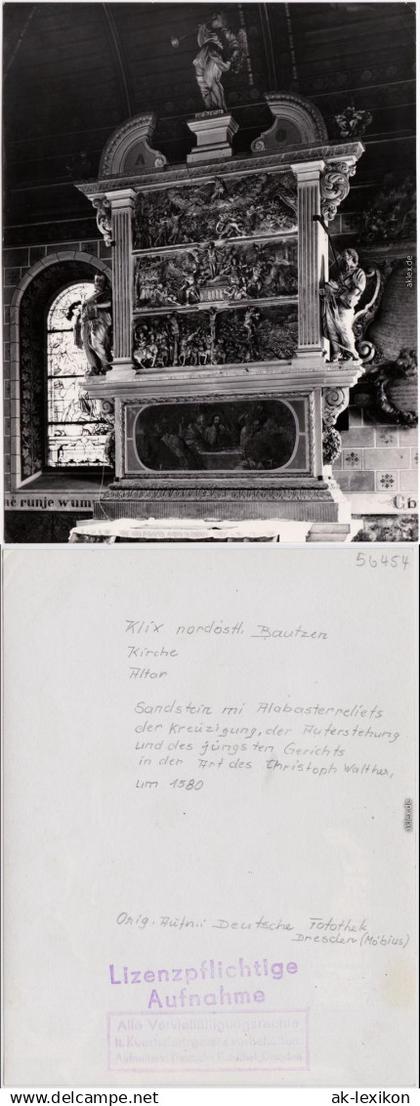 akdex.de
nè runje w um
Cb
56454
Klix nordöstl. Bautzen
Kirche
Altar
Sandstein mi Alabasterreliefs
der Kreuzigung, der Auferstehung
und des jüngsten Gerichts
in der Art des Christoph Walther,
um 1580
akdex.de
Orig. Aufn.: Deutsche Fotothek
Dresden (Möbius)
Lizenzpflichtige
Aufnahme
Alle Vervielfältigungsrechte
Deutsche Fotothek Dresden
www.ak-ansichtskarten.de
ak-lexikon